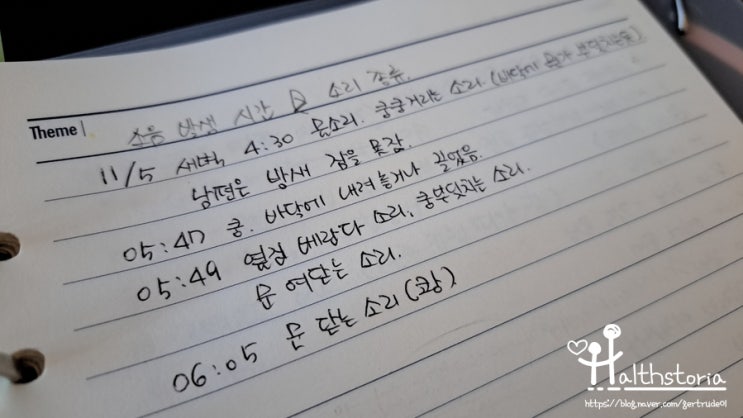 Theme
소음 발생 시간 및 소리 종류.
11/5 새벽 4:30 문소리. 쿵쿵거리는 소리. (바닥에 뭔가 부딪치는듯)
남편은 밤새 잠을 못잠.
05:47 쿵. 바닥에 내려놓거나 끌었음.
05:49 옆집 베란다 소리, 쿵부딪치는 소리.
문 여닫는 소리.
06:05 문 닫는 소리 (쾅)
Healthstoria
https://blog.naver.com/gertrude01